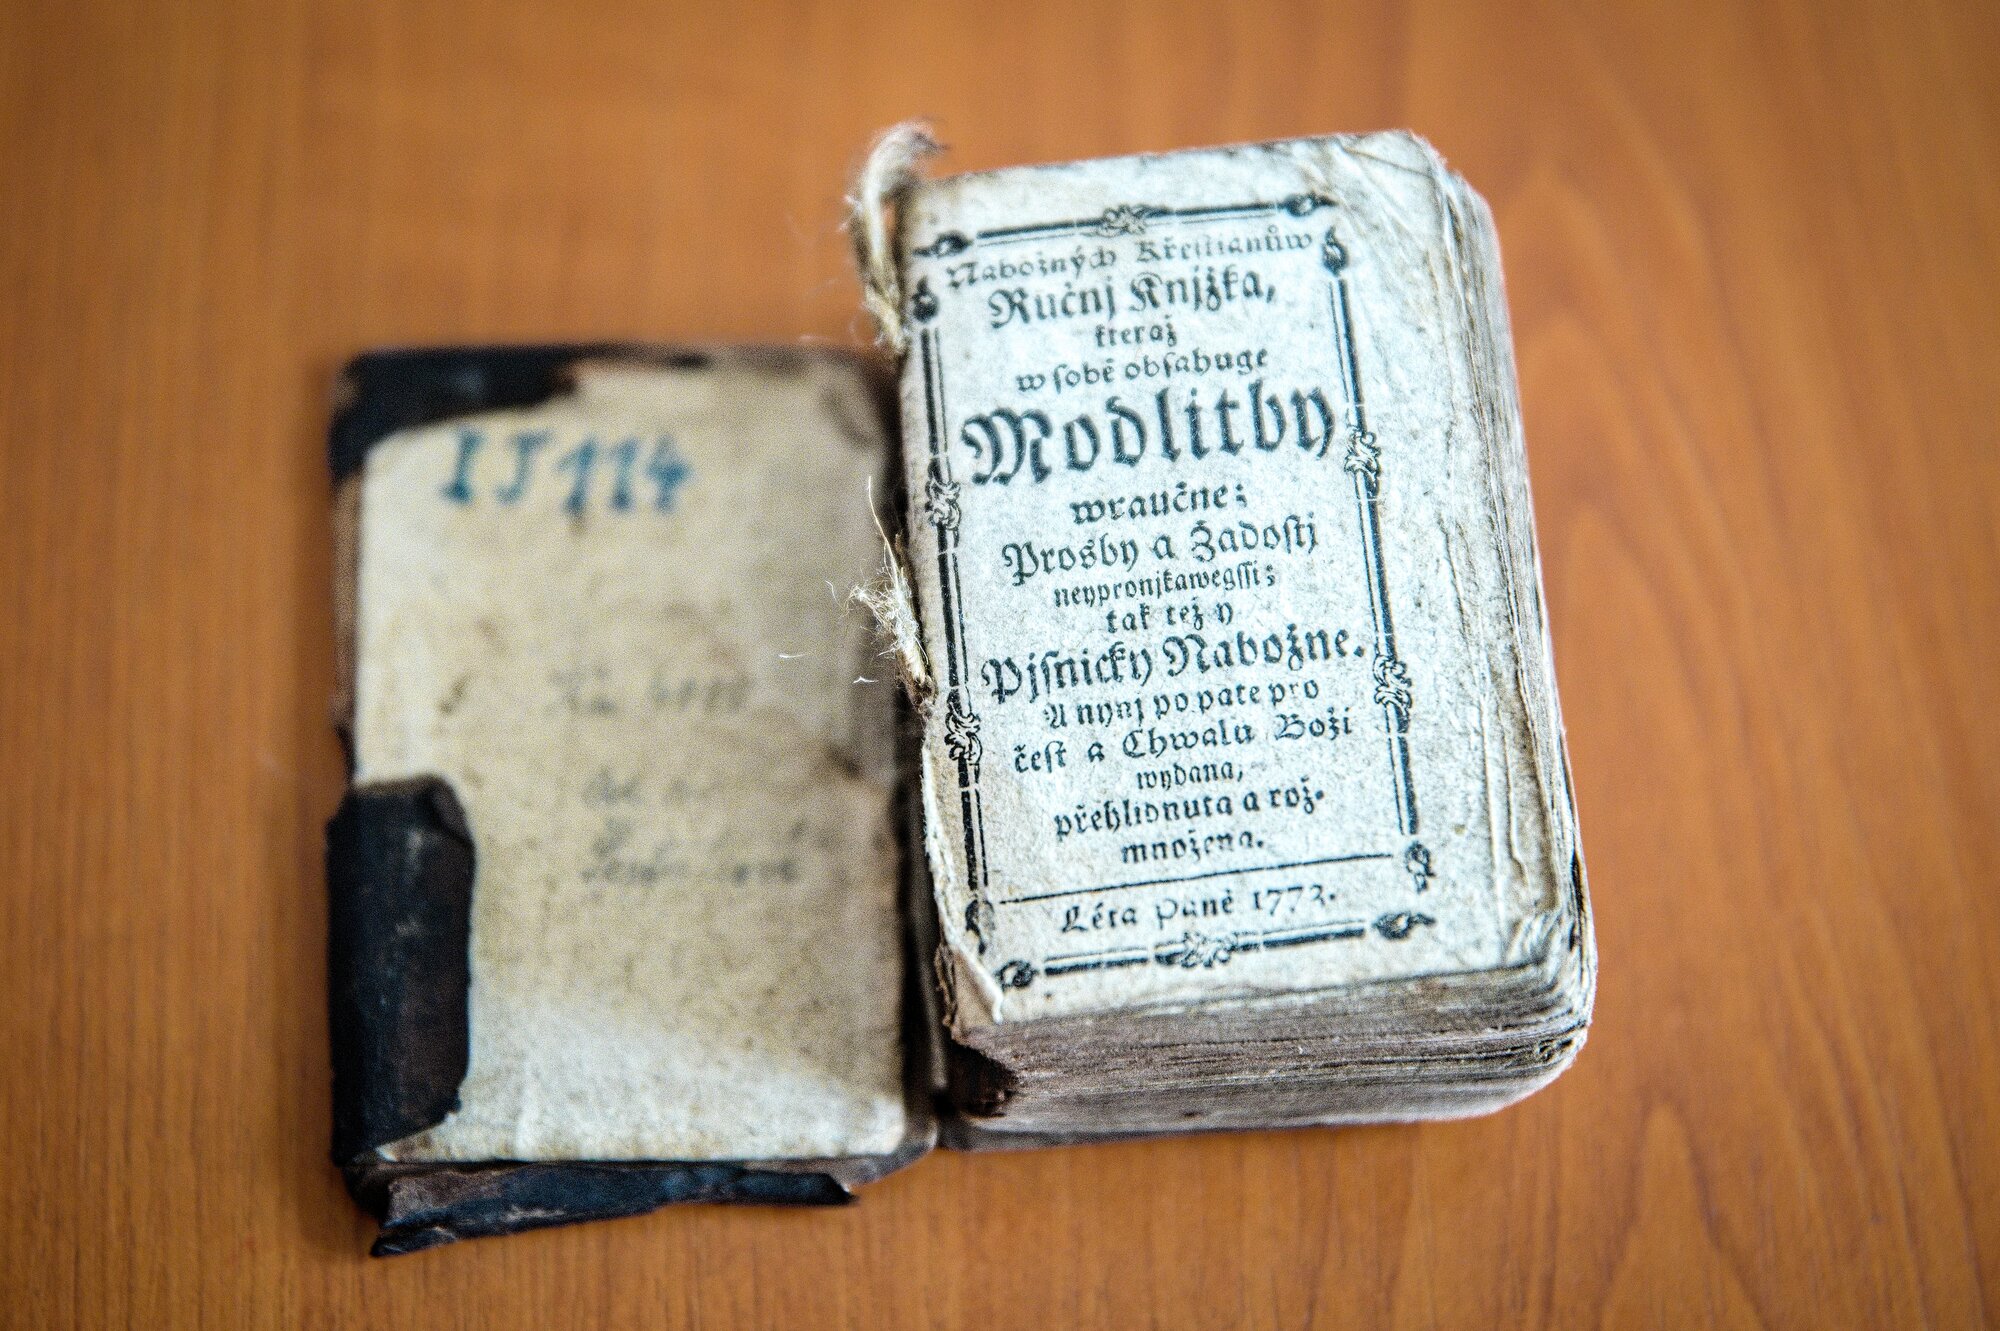 IJ114
Nabožných Křestianůw
Ručnj Knjžka,
kteraž
w ſobě obſahuge
Modlitby
wraučne;
Prosby a Žadoſtj
neypronjkawegſſi;
tak též y
Pjſnicky Nabožne.
A nynj po pate pro
čeſt a Chwalu Boži
wydana,
přehlidnuta a roz-
množena.
Léta Páně 1772.